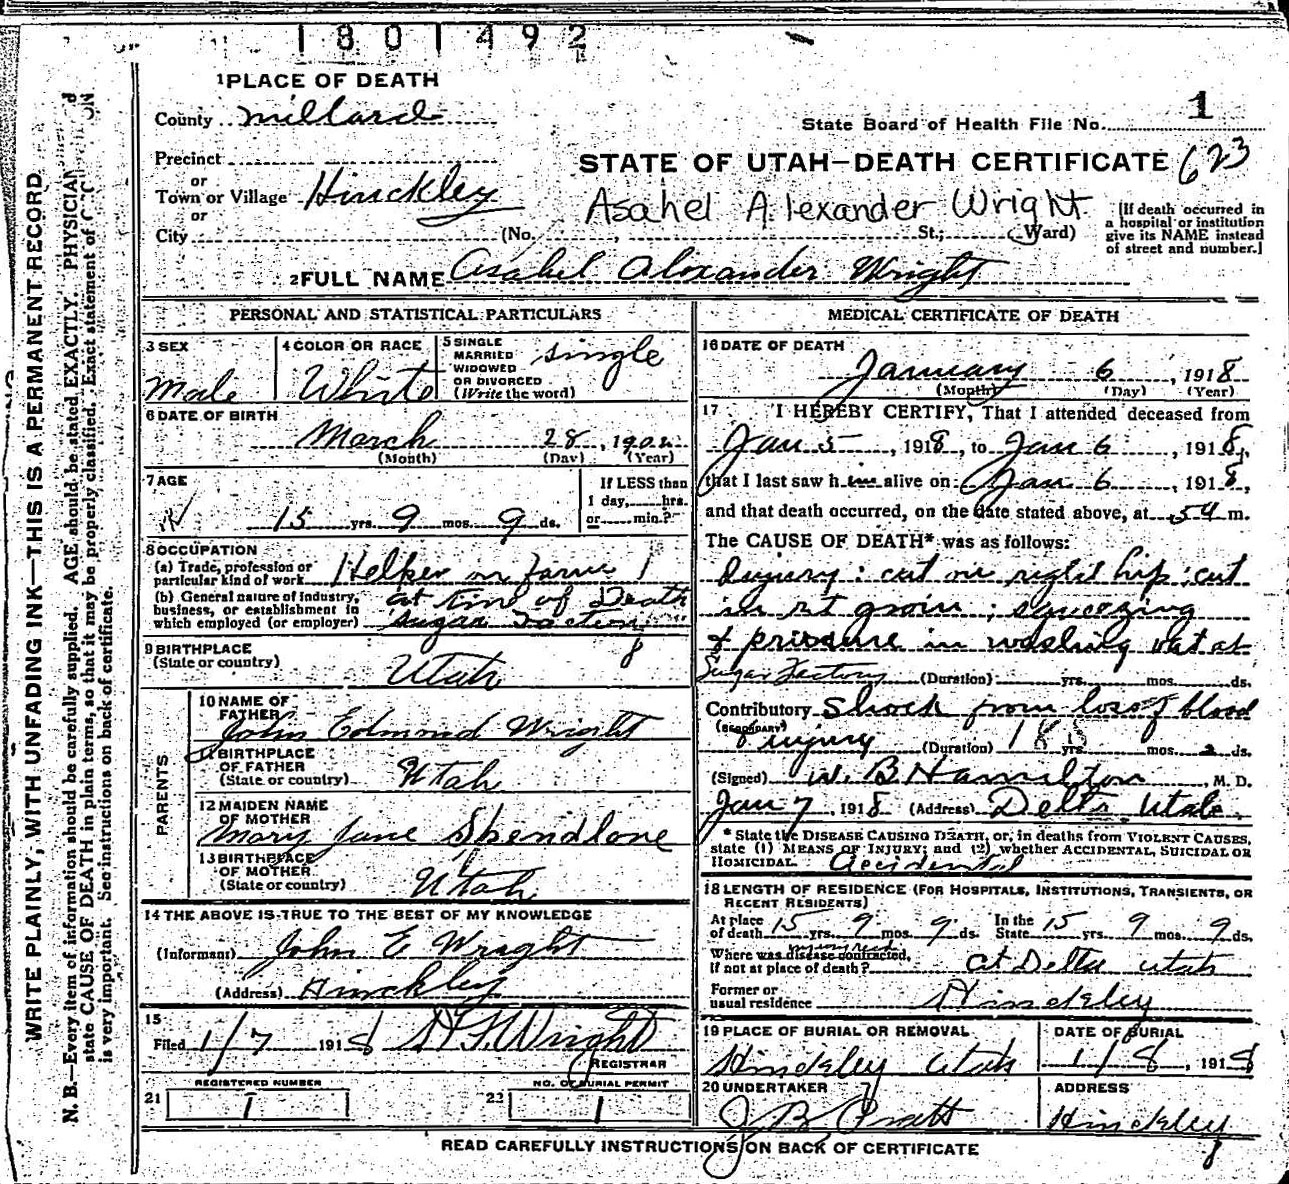 1801492
1 PLACE OF DEATH
County Millard
State Board of Health File No. 1
Precinct
or
STATE OF UTAH—DEATH CERTIFICATE 623
Town or Village Hinckley
or
Asahel Alexander Wright
City (No. , St.; Ward)
[If death occurred in
a hospital or institution
give its NAME instead
of street and number.]
2 FULL NAME Asahel Alexander Wright
PERSONAL AND STATISTICAL PARTICULARS
3 SEX
Male
4 COLOR OR RACE
White
5 SINGLE
MARRIED
WIDOWED
OR DIVORCED
(Write the word)
single
6 DATE OF BIRTH
March 28, 1902
(Month) (Day) (Year)
7 AGE
15 yrs. 9 mos. 9 ds.
If LESS than
1 day, hrs.
or min.?
8 OCCUPATION
(a) Trade, profession or
particular kind of work Helper on farm
(b) General nature of industry,
business, or establishment in
which employed (or employer)
at time of Death
Sugar Factory
9 BIRTHPLACE
(State or country)
Utah
8
PARENTS
10 NAME OF
FATHER
John Edmond Wright
11 BIRTHPLACE
OF FATHER
(State or country) Utah
12 MAIDEN NAME
OF MOTHER
Mary Jane Spendlove
13 BIRTHPLACE
OF MOTHER
(State or country) Utah
14 THE ABOVE IS TRUE TO THE BEST OF MY KNOWLEDGE
(Informant) John E Wright
(Address) Hinckley
15
Filed 1/7 1918 Wright
REGISTRAR
REGISTERED NUMBER
21 1
NO. OF BURIAL PERMIT
22 1
MEDICAL CERTIFICATE OF DEATH
16 DATE OF DEATH
January 6, 1918
(Month) (Day) (Year)
17 I HEREBY CERTIFY, That I attended deceased from
Jan 5, 1918, to Jan 6, 1918,
that I last saw him alive on Jan 6, 1918,
and that death occurred, on the date stated above, at m.
The CAUSE OF DEATH* was as follows:
Injury: cut on right hip; cut
in rt groin; squeezing
& pressure in washing vat at
Sugar Factory (Duration) yrs. mos. ds.
Contributory Shock from loss of blood
(SECONDARY)
& injury (Duration) yrs. mos. 2 ds.
(Signed) W. B Hamilton M. D.
Jan 7, 1918 (Address) Delta, Utah
* State the DISEASE CAUSING DEATH, or, in deaths from VIOLENT CAUSES,
state (1) MEANS OF INJURY; and (2) whether ACCIDENTAL, SUICIDAL OR
HOMICIDAL. Accidental
18 LENGTH OF RESIDENCE (FOR HOSPITALS, INSTITUTIONS, TRANSIENTS, OR
RECENT RESIDENTS)
At place
of death 15 yrs. 9 mos. 9 ds.
In the
State 15 yrs. 9 mos. 9 ds.
Where was disease contracted, injury recd
if not at place of death? at Delta Utah
Former or
usual residence Hinckley
19 PLACE OF BURIAL OR REMOVAL
Hinckley Utah
DATE OF BURIAL
1/8, 1918
20 UNDERTAKER
J B Pratt
ADDRESS
Hinckley
READ CAREFULLY INSTRUCTIONS ON BACK OF CERTIFICATE
WRITE PLAINLY, WITH UNFADING INK—THIS IS A PERMANENT RECORD
N. B.—Every item of information should be carefully supplied. AGE should be stated EXACTLY. PHYSICIAN
state CAUSE OF DEATH in plain terms, so that it may be properly classified. Exact statement of
is very important. See instructions on back of certificate.